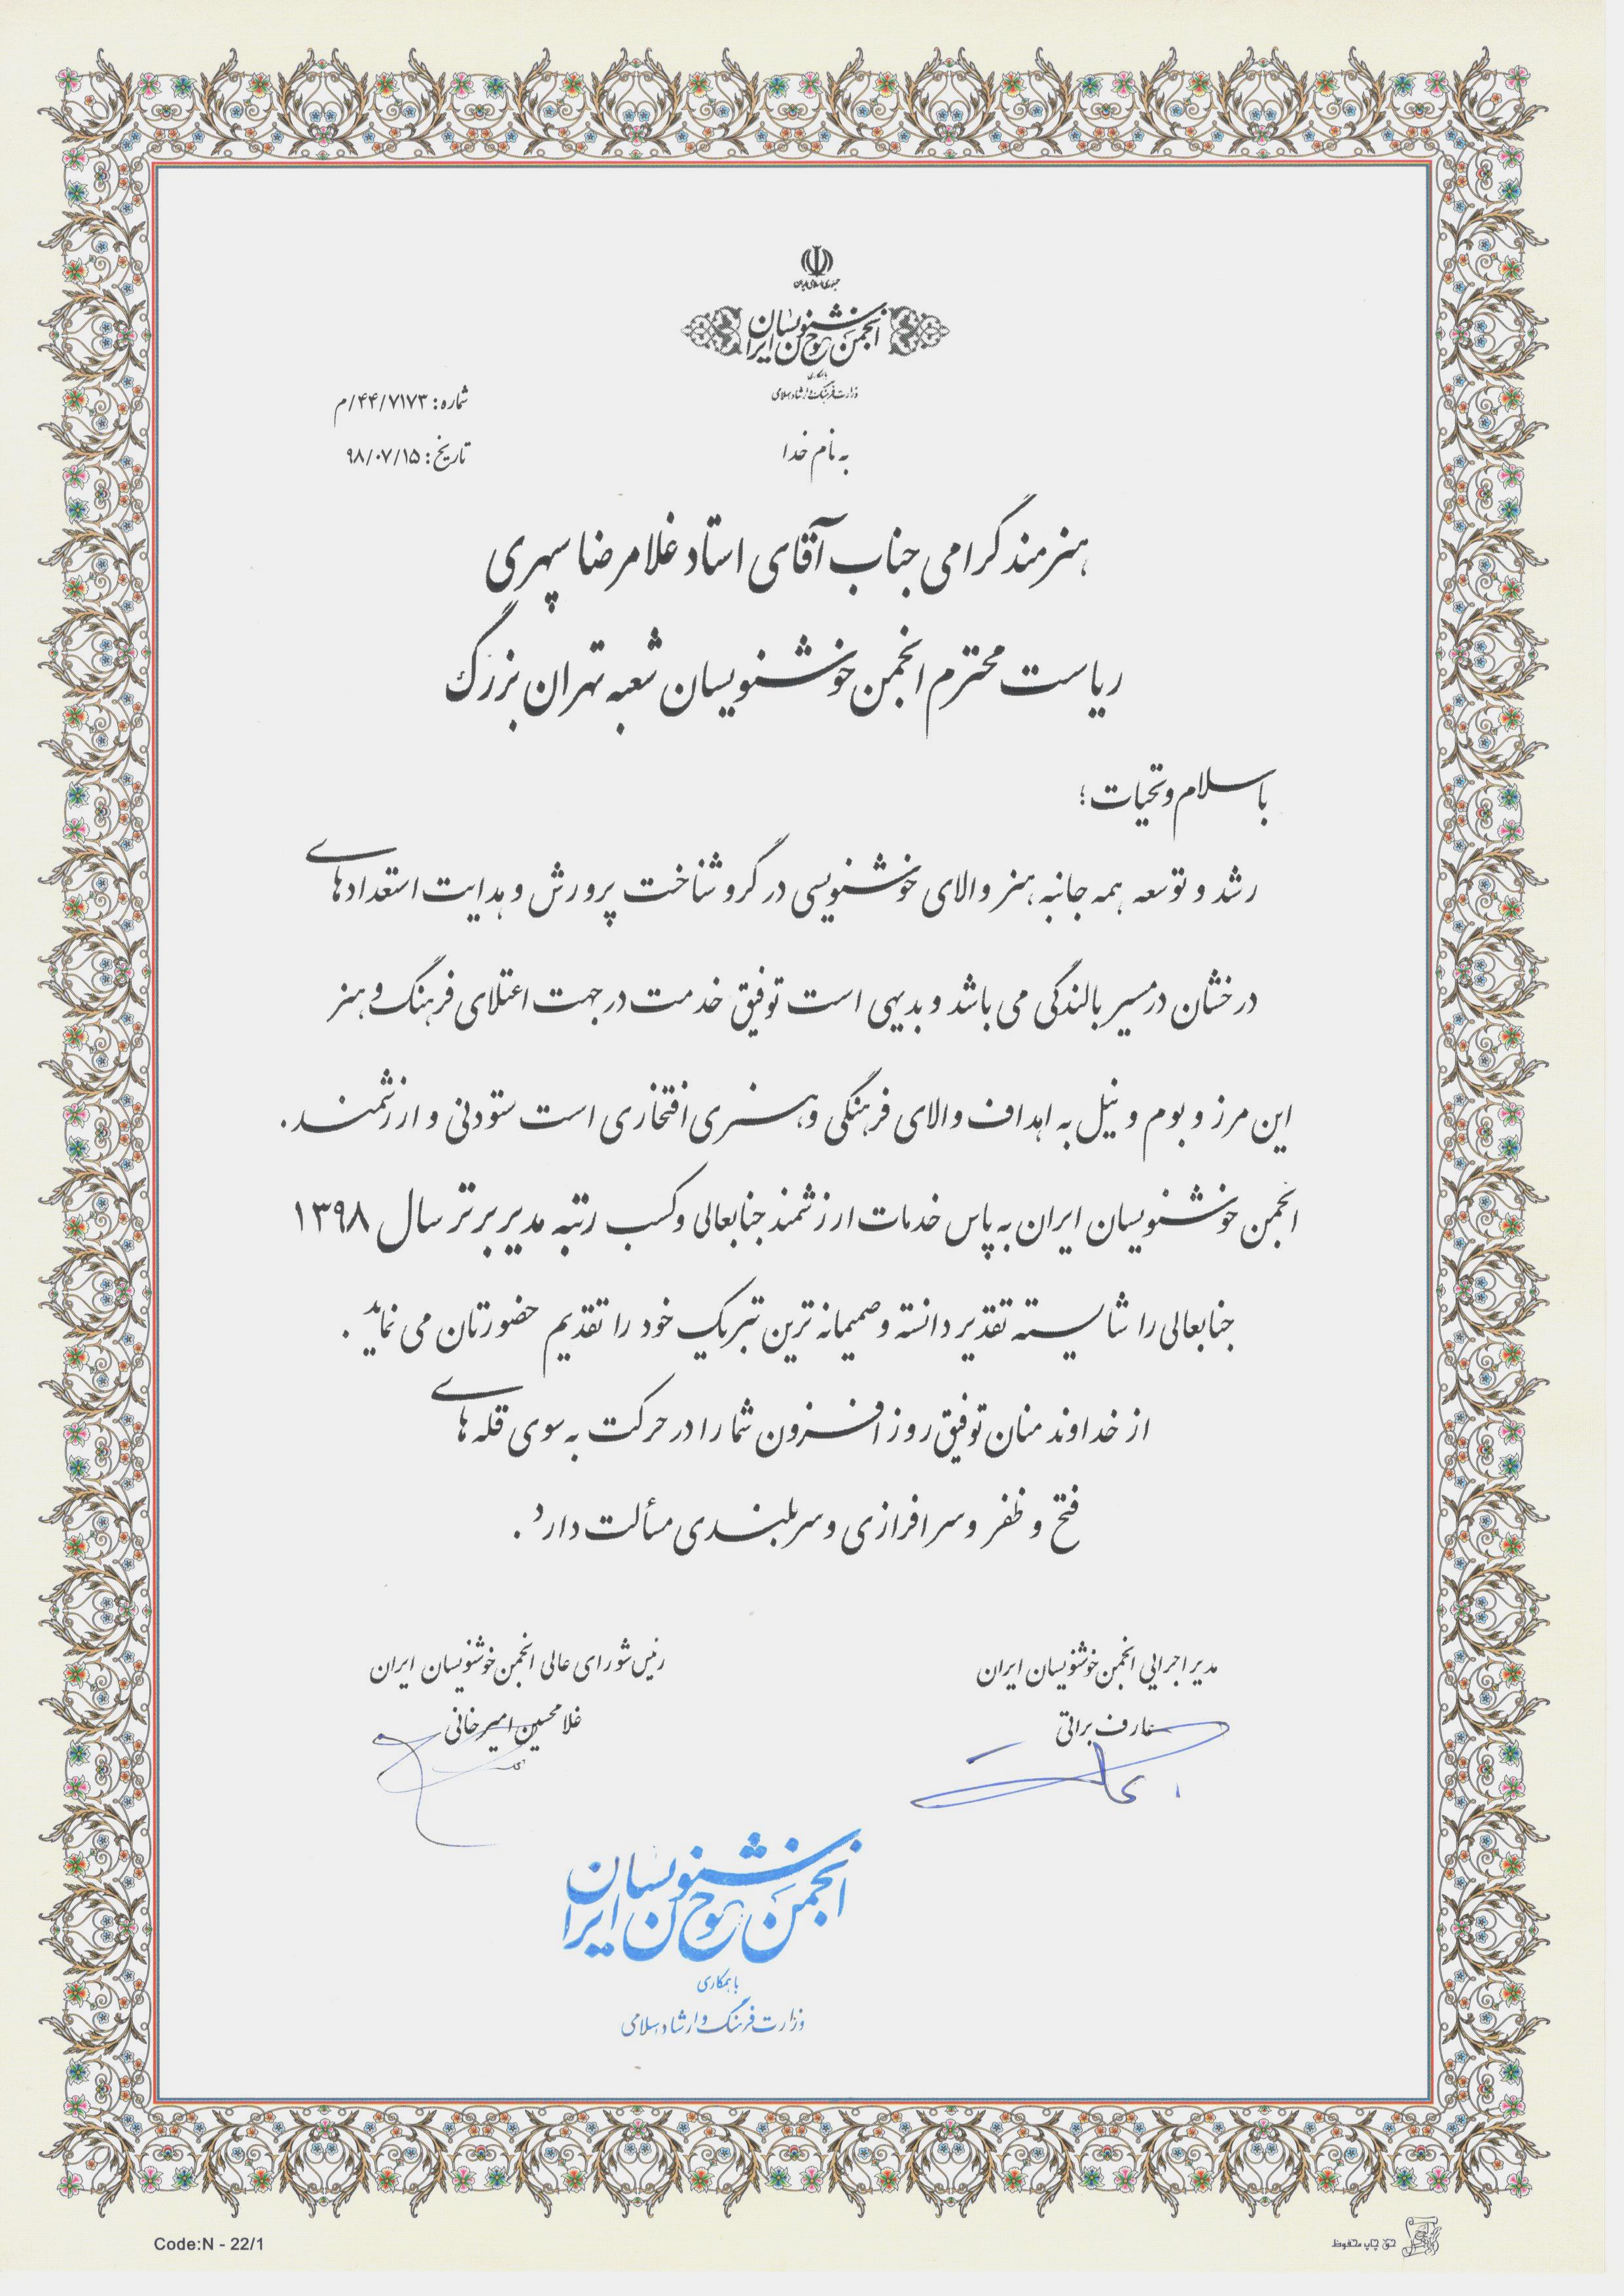 جمهوری اسلامی ایران
انجمن خوشنویسان ایران
با همکاری
وزارت فرهنگ و ارشاد اسلامی
شماره: ۴۴/۷۱۷۳/م
تاریخ: ۹۸/۰۷/۱۵
به نام خدا
هنرمند گرامی جناب آقای استاد غلامرضا سپهری
ریاست محترم انجمن خوشنویسان شعبه تهران بزرگ
با سلام و تحیات؛
رشد و توسعه همه جانبه هنر والای خوشنویسی در گرو شناخت پرورش و هدایت استعدادهای
درخشان در مسیر بالندگی می باشد و بدیهی است توفیق خدمت در جهت اعتلای فرهنگ و هنر
این مرز و بوم و نیل به اهداف والای فرهنگی و هنری افتخاری است ستودنی و ارزشمند.
انجمن خوشنویسان ایران به پاس خدمات ارزشمند جنابعالی و کسب رتبه مدیر برتر سال ۱۳۹۸
جنابعالی را شایسته تقدیر دانسته و صمیمانه ترین تبریک خود را تقدیم حضورتان می نماید.
از خداوند منان توفیق روز افزون شما را در حرکت به سوی قله های
فتح و ظفر و سرافرازی و سربلندی مسألت دارد.
مدیر اجرایی انجمن خوشنویسان ایران
عارف براتی
رئیس شورای عالی انجمن خوشنویسان ایران
غلامحسین امیرخانی
انجمن خوشنویسان ایران
با همکاری
وزارت فرهنگ و ارشاد اسلامی
Code:N - 22/1
حق چاپ محفوظ